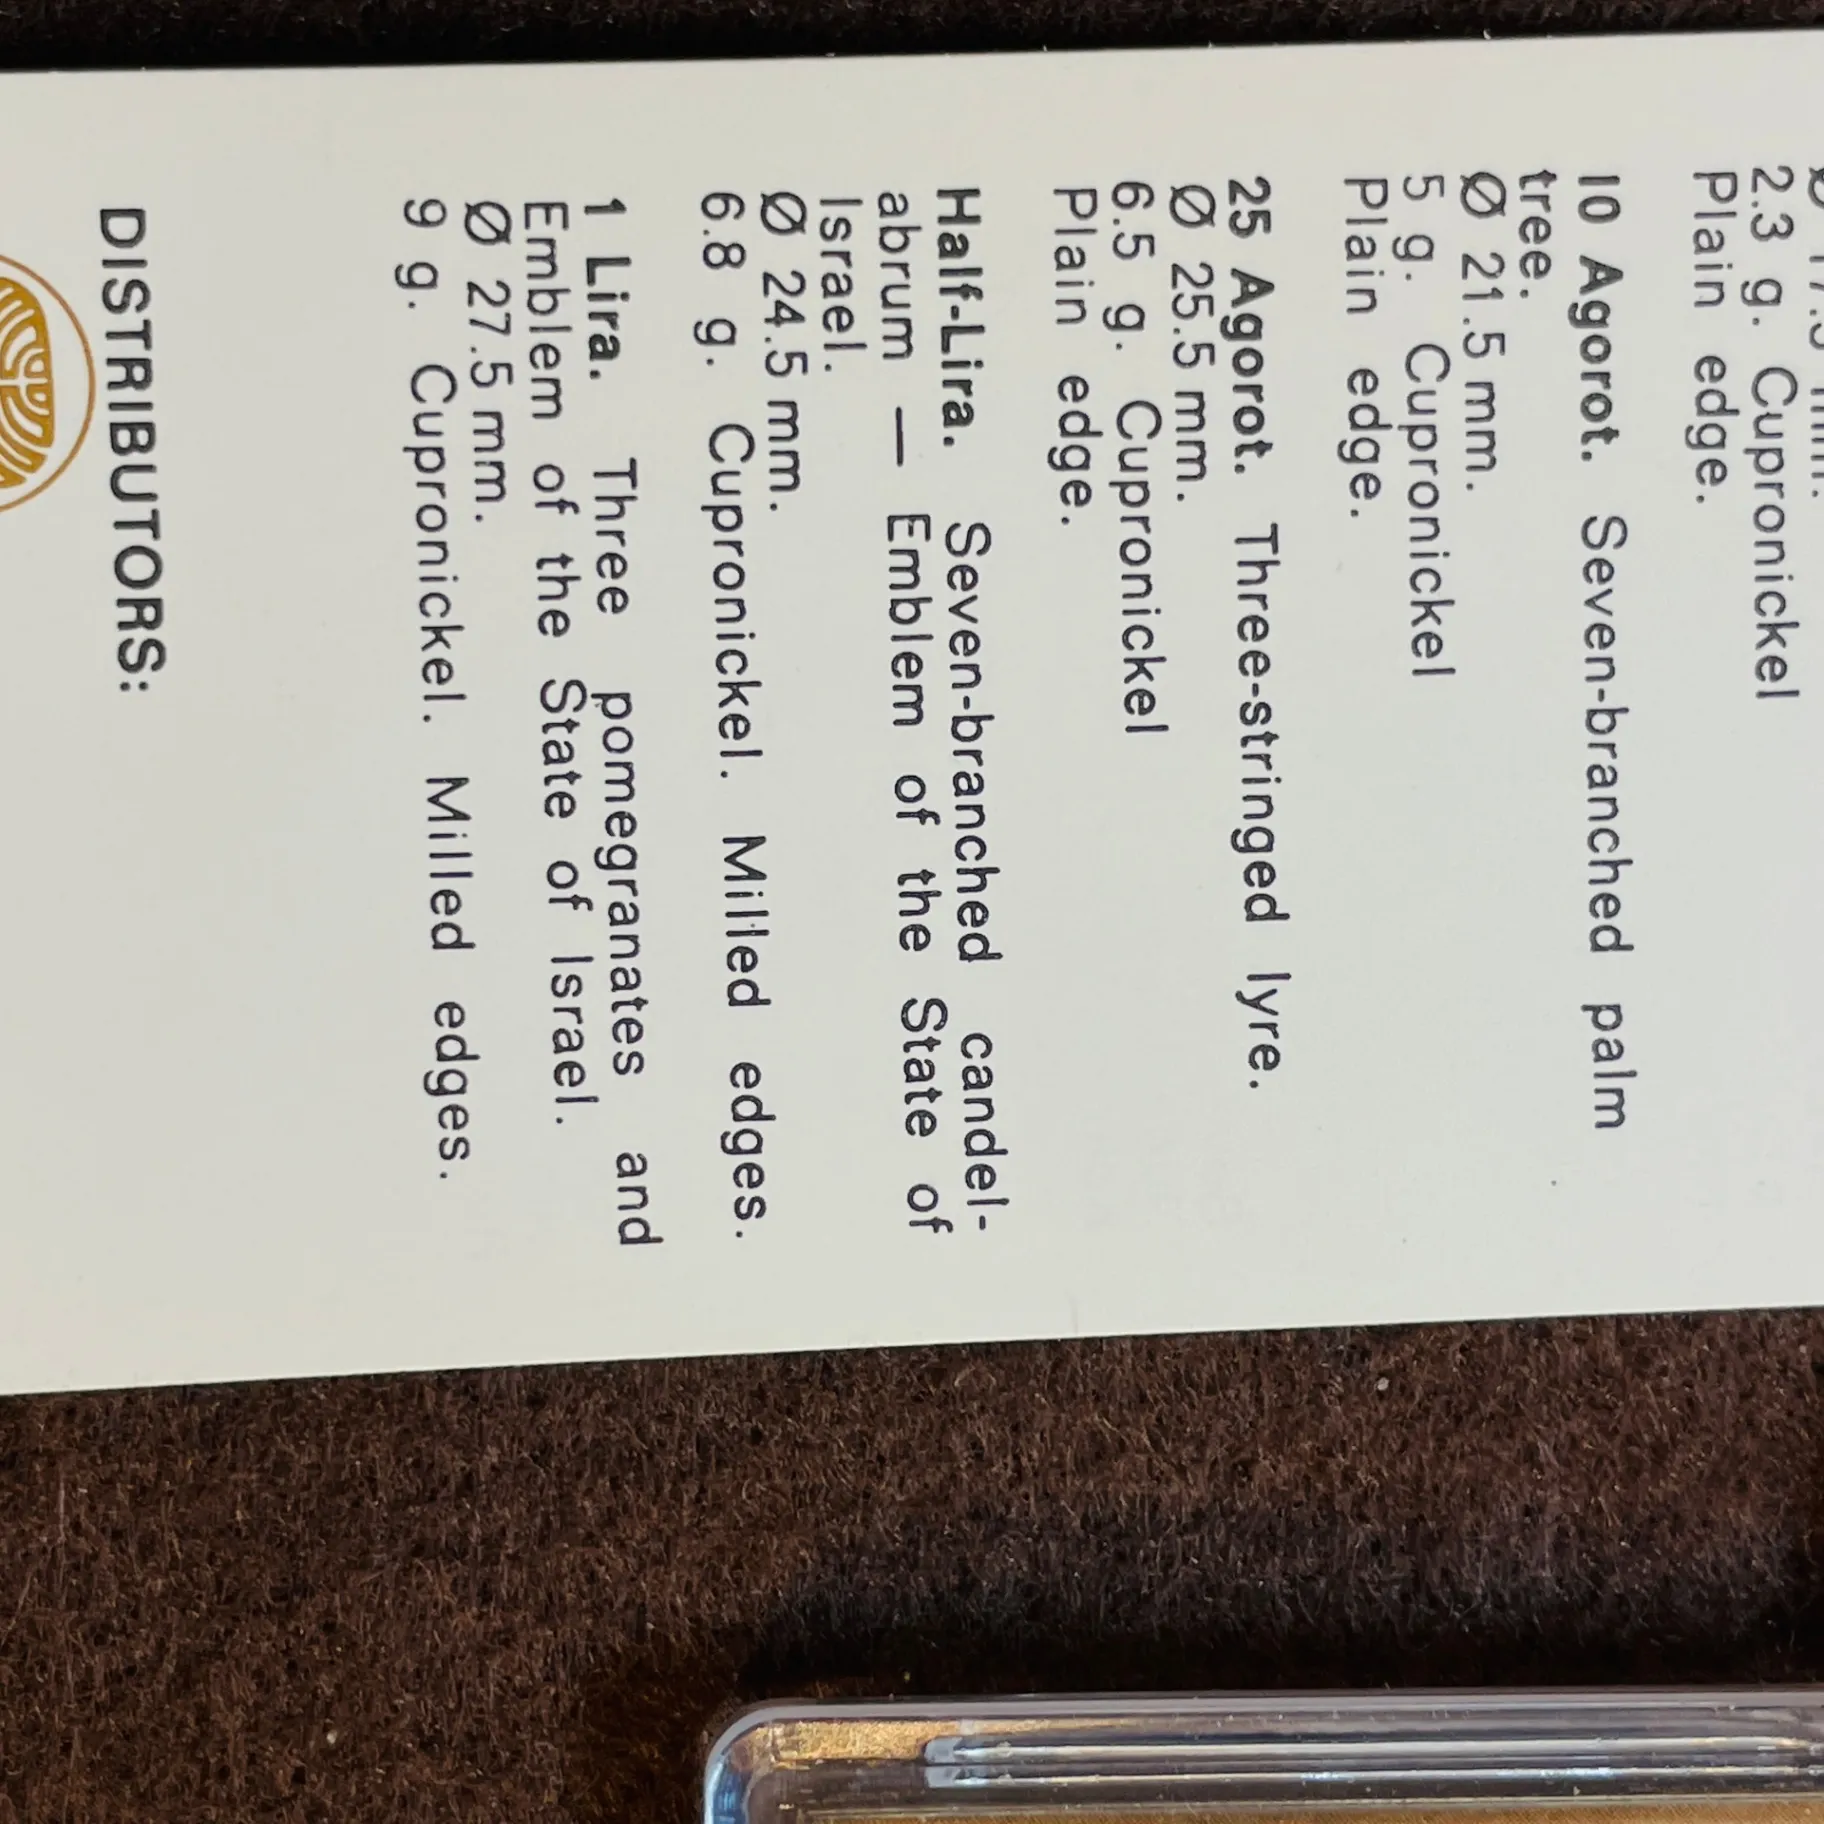 2.3 g. Cupronickel
Plain edge.
10 Agorot. Seven-branched palm
tree.
Ø 21.5 mm.
5 g. Cupronickel
Plain edge.
25 Agorot. Three-stringed lyre.
Ø 25.5 mm.
6.5 g. Cupronickel
Plain edge.
Half-Lira. Seven-branched candel-
abrum — Emblem of the State of
Israel.
Ø 24.5 mm.
6.8 g. Cupronickel. Milled edges.
1 Lira. Three pomegranates and
Emblem of the State of Israel.
Ø 27.5 mm.
9 g. Cupronickel. Milled edges.
DISTRIBUTORS: